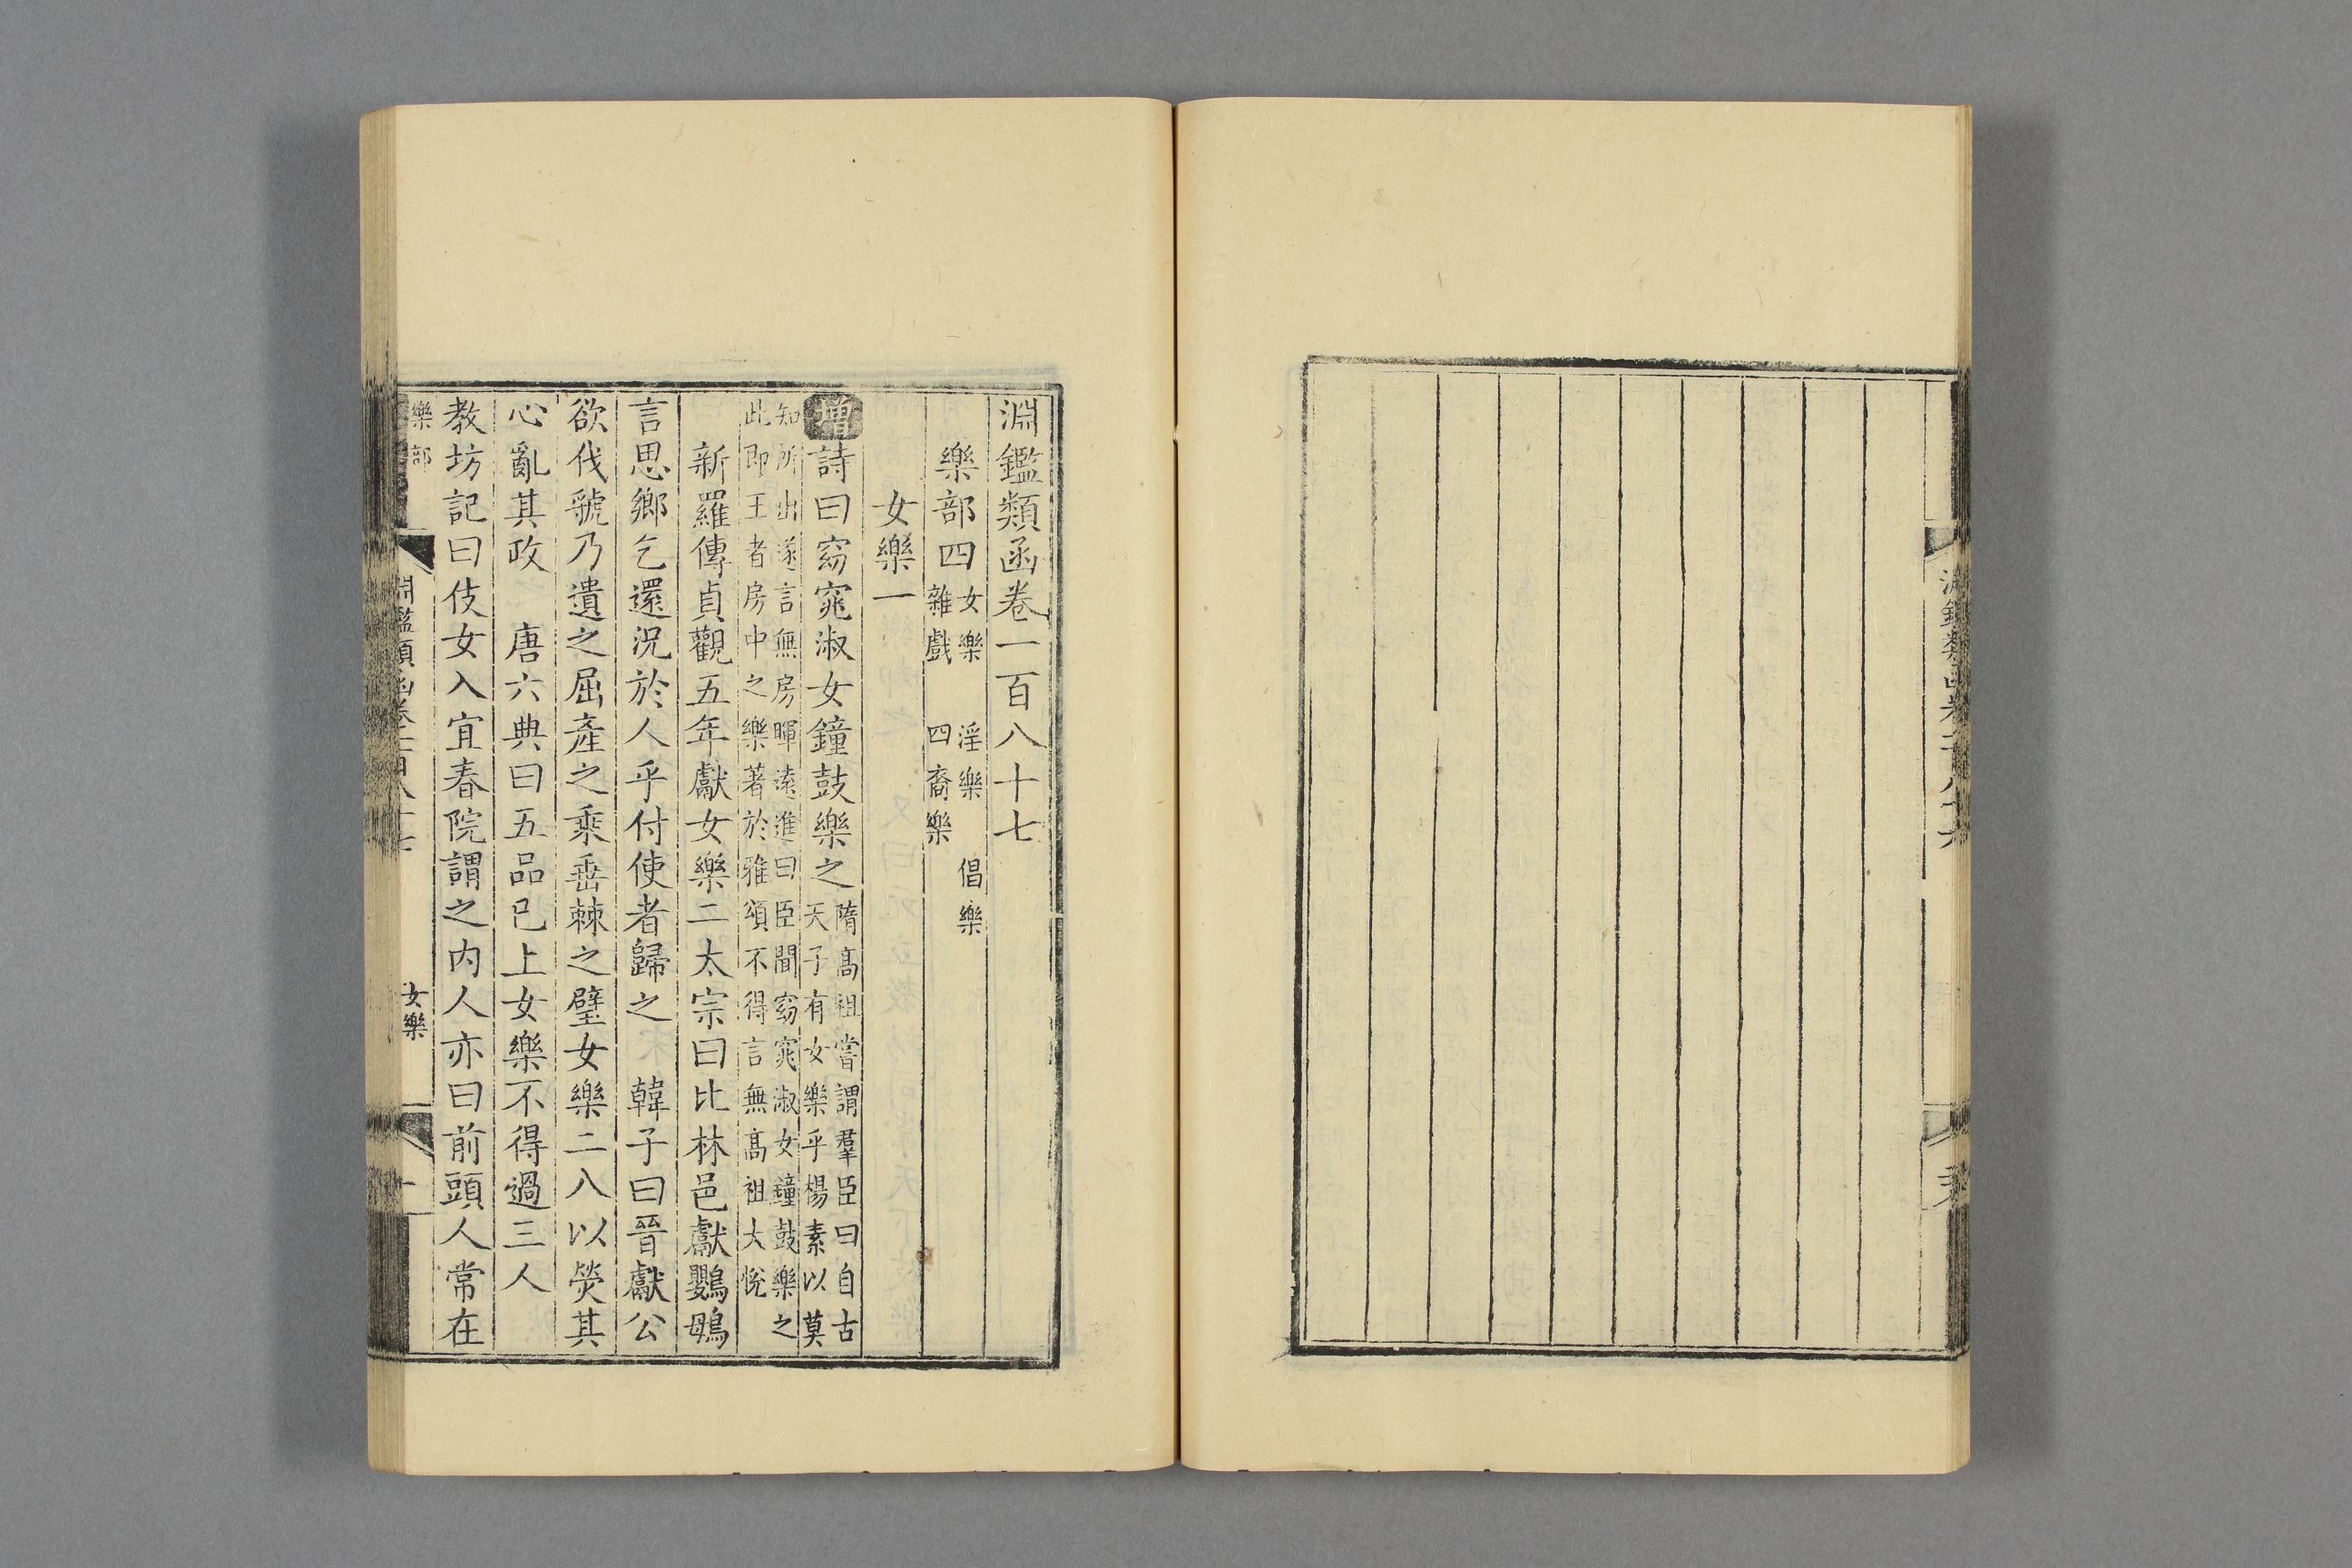 淵鑑類函卷一百八十七
樂部四 女樂 淫樂 倡樂
雜戲 四裔樂
女樂一
增詩曰窈窕淑女鐘鼓樂之 隋髙祖嘗謂羣臣曰自古
天子有女樂乎楊素以莫
知所出遂言無房暉遠進曰臣聞窈窕淑女鐘鼓樂之
此即王者房中之樂著於雅頌不得言無髙祖大悅
新羅傳貞觀五年獻女樂二太宗曰比林邑獻鸚鵡
言思鄉乞還況於人乎付使者歸之 韓子曰晉獻公
欲伐虢乃遺之屈產之乘垂棘之璧女樂二八以熒其
心亂其政 唐六典曰五品已上女樂不得過三人
教坊記曰伎女入宜春院謂之内人亦曰前頭人常在
樂部
淵鑑類函卷一百八十七
女樂
一